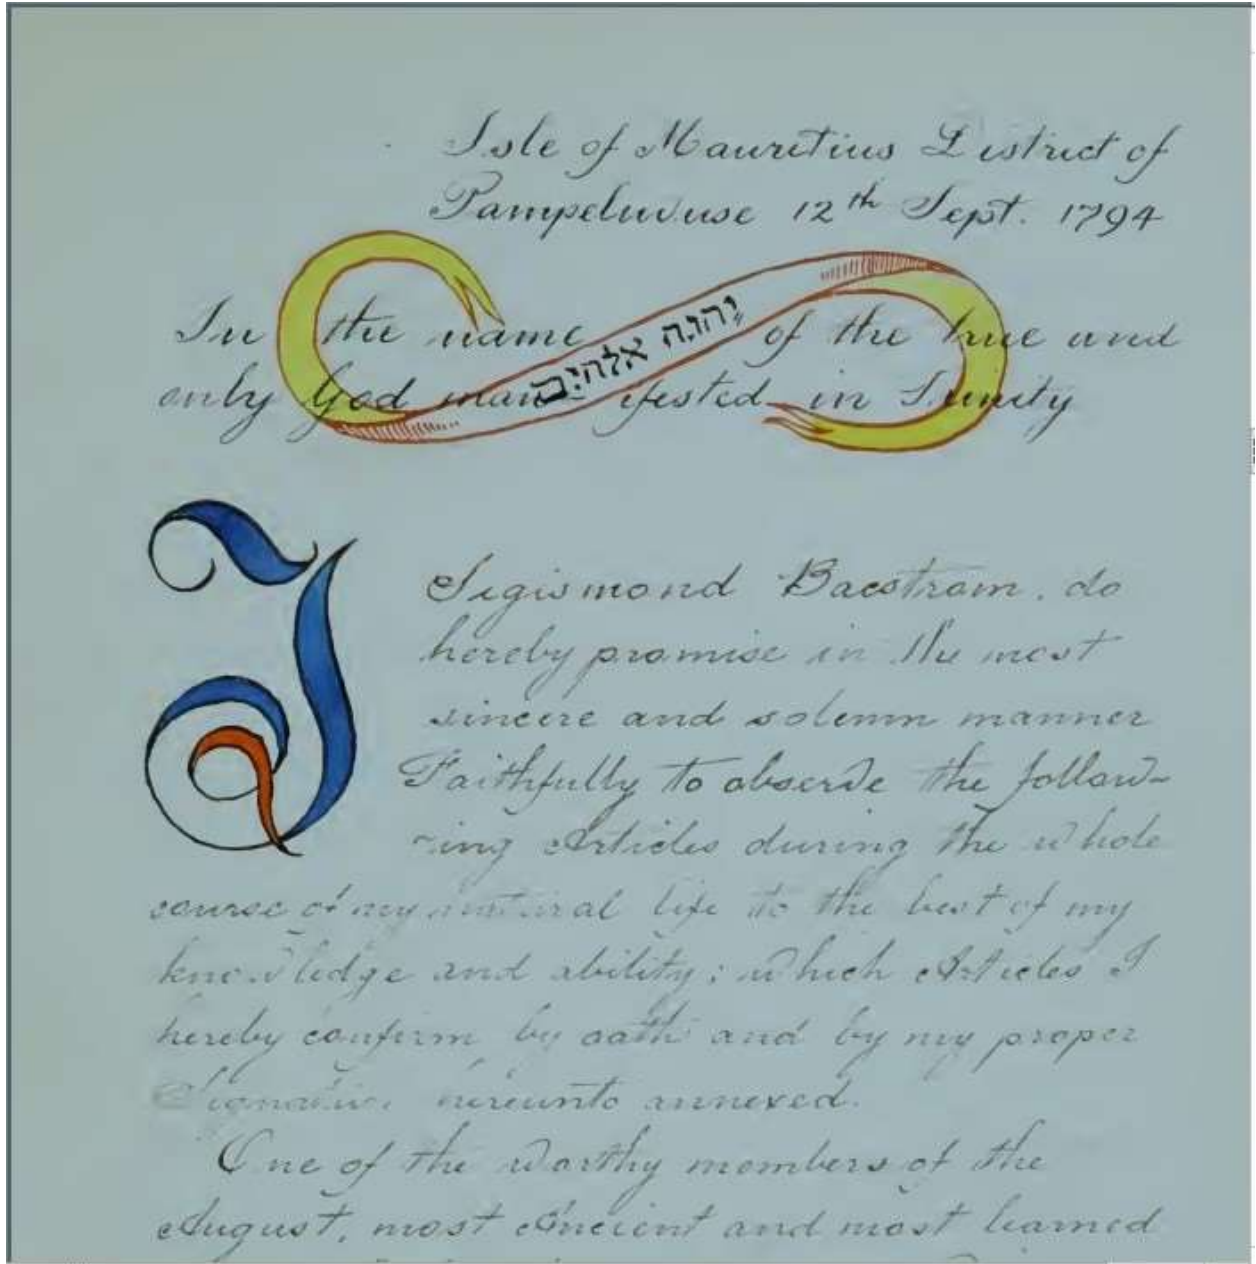 Isle of Mauritius District of
Pampeluvuse 12th Sept. 1794
In the name יהוה אלהים of the true and
only God manifested in Trinity
I Sigismond Bacstrom. do
hereby promise in the most
sincere and solemn manner
Faithfully to observe the follow-
ing Articles during the whole
course of my natural life to the best of my
knowledge and ability; which Articles I
hereby confirm by oath and by my proper
Signature hereunto annexed.
One of the worthy members of the
August, most Ancient and most learned